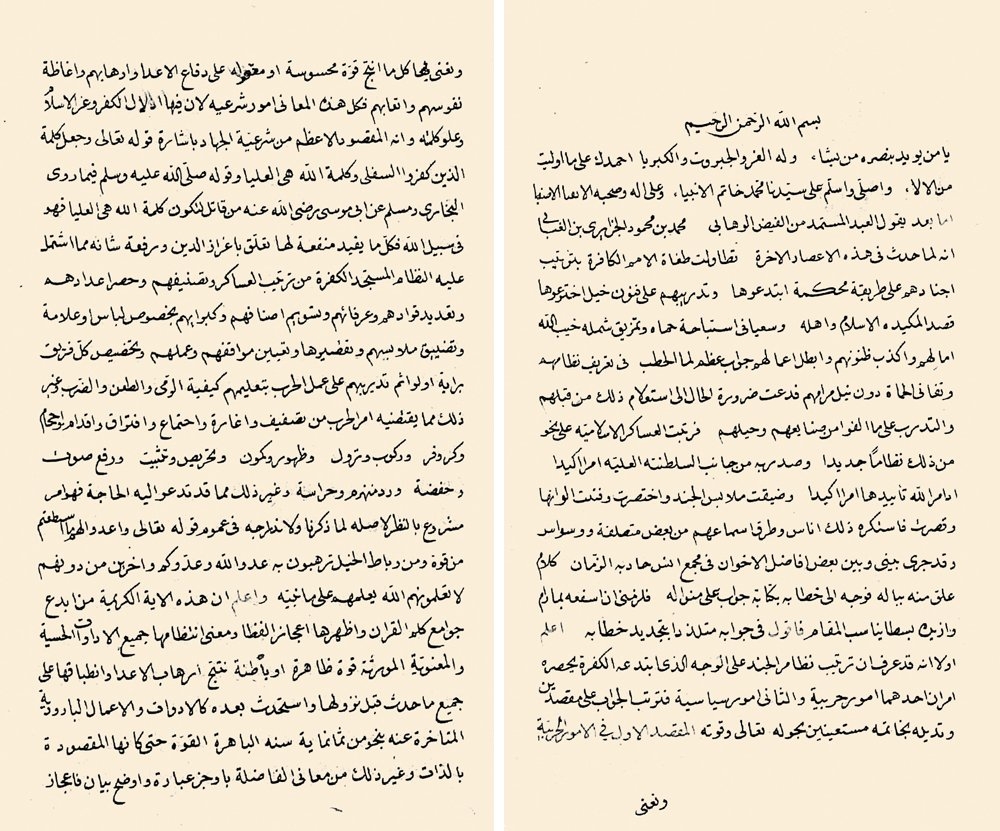 بسم الله الرحمن الرحيم
يا من يويد بنصره من يشاء، وله العز والجبروت والكبريا احمدك على ما اوليت
من الالا، واصلي واسلم على سيدنا محمد خاتم الانبياء، وعلى اله وصحبه
اما بعد يقول العبد المستمد من الفيض الوهابي محمد بن محمود الجزايري بن العنابي
انه لما حدث في هذه الاعصار الاخرة تطاولت طغاة الامم الكافرة بترتيب
اجنادهم على طريقة محكمة ابتدعوها وتدريبهم على فنون خيل اخترعوها
قصد المكيده الاسلام واهله وسعيا في استباحة حماه وتمزيق شمله خيب الله
امالهم واكذب ظنونهم وابطل اعمالهم جواب عظم لما الخطب في تعريف نظامهم
وتفانى الحماة دون نيل مرامهم فدعت ضرورة الحال الى استعلام ذلك من قبلهم
والتدرب على ما الفوا من صنايعهم وحيلهم فرتبت العساكر الاسلامية على نحو
من ذلك نظاما جديدا وصدر به من جانب السلطنته العليه امرا كيدا
ادام الله تاييدها امرا كيدا وضيقت ملابس الجند واختصرت وفتنت الوانها
وقصرت فاستكره ذلك اناس وطرق اسماعهم من بعض متصلفة ووسواس
وقد جرى بيني وبين بعض افاضل الاخوان في مجمع انس حاد به الزمان كلام
علق منه بباله فوجه الى خطابه بكتابة جواب على منواله فلزمني ان اسعفه بمارام
وازيده بسطا يناسب المقام فاقول في جوابه متلذذا بتجديد خطابه اعلم
اولا انه قد عرف ان ترتيب نظام الجند على الوجه الذى ابتدعه الكفرة يحصره
امران احدهما امور حربية والثاني امور سياسية فترتب الجواب على مقصدين
وتذيله بخاتمه مستعينين بحوله تعالى وقوته المقصد الاول في الامور الحربية
ونعنى
ونعنى بها كل ما انتج قوة محسوسة او معقوله على دفاع الاعدا وارهابهم واغاظة
نفوسهم واتعابهم فكل هذه المعانى امور شرعيه لان فيها اذلال الكفر وعز الاسلام
وعلو كلمته وانه المقصود الاعظم من شرعية الجهاد باشارة قوله تعالى وجعل كلمة
الذين كفروا السفلى وكلمة الله هي العليا وقوله صلى الله عليه وسلم فيما روى
البخارى ومسلم عن ابى موسى رضي الله عنه من قاتل لتكون كلمة الله هي العليا فهو
في سبيل الله فكل ما يفيد منفعة لها تعلق باعزاز الدين ورفعة شانه مما اشتمل
عليه النظام المستجد الكفرة من ترتيب العساكر وتصنيفهم وحصر اعدادهم
وتعديد قوادهم وعرفائهم وتسويم اصنافهم وكبرايهم بخصوص لباس او علامة
وتضييق ملابسهم وتقصيرها وتعيين مواقفهم وعملهم وتخصيص كل فريق
براية او لوائم تدريبهم على عمل الحرب بتعليمهم كيفية الرمى والطعن والضرب غير
ذلك مما يقتضيه امر الحرب من تصفيف واغارة واجتماع وافتراق واقدام واحجام
وكر وفر وركوب ونزول وظهور وكون وتحريص وتثبيت ورفع صوت
وخفضة ورد منهزم وحراسة وغير ذلك مما قد تدعو اليه الحاجة فهو امر
مشروع بالنظر لاصله لما ذكرنا ولاندراجه في عموم قوله تعالى واعدوا لهم ما استطعتم
من قوة ومن رباط الخيل ترهبون به عدو الله وعدوكم واخرين من دونهم
لا تعلمونهم الله يعلمهم على ما نبيه واعلم ان هذه الاية الكريمة من ابدع
جوامع كلم القران واظهرها اعجاز الفظا ومعنى انتظامها جميع الادوات الحسية
والمعنوية المورثة قوة ظاهرة او باطنة تنتج ارهاب الاعدا وانطباقها على
جميع ما حدث قبل نزولها واستحدث بعده كالادوات والاعمال البارودية
المتاخرة عنه بنحو من ثمانماية سنه الباهرة القوة حتى كانها المقصودة
بالذات وغير ذلك من معانى الفاضلة باوجز عبارة واوضح بيان فاعجاز